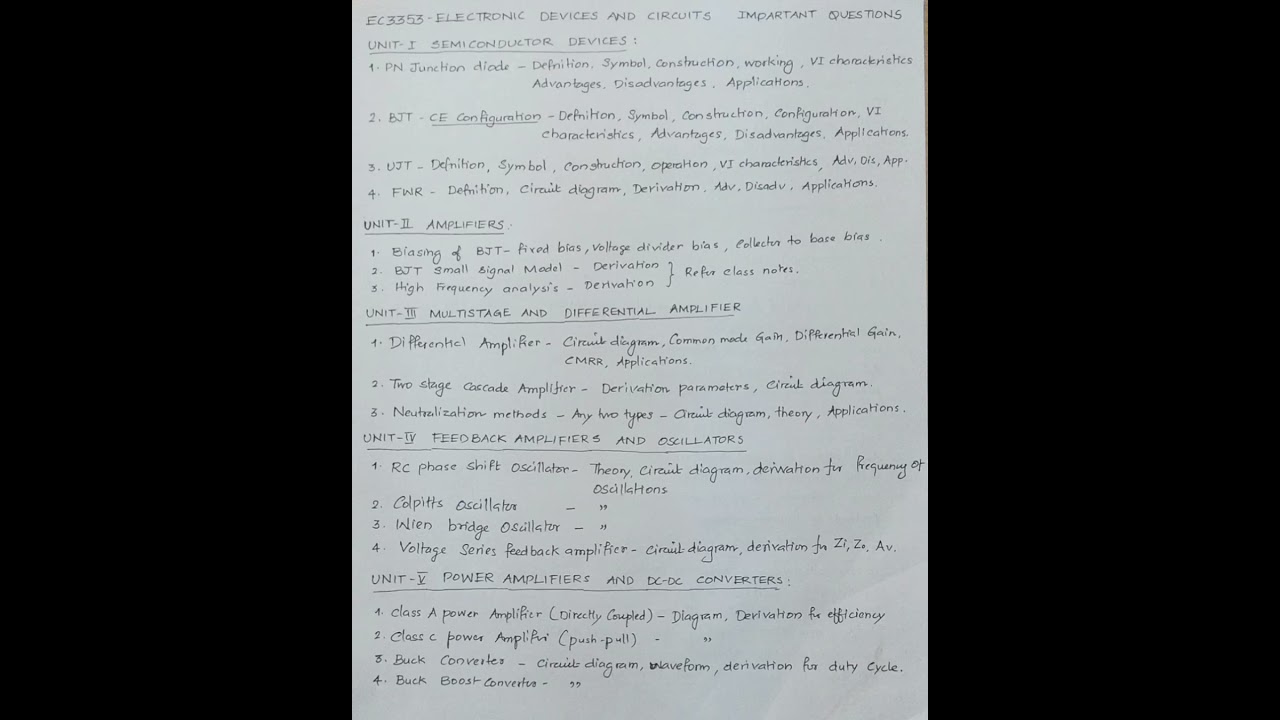 EC3353 - ELECTRONIC DEVICES AND CIRCUITS IMPARTANT QUESTIONS
UNIT-I SEMICONDUCTOR DEVICES :
1. PN Junction diode - Defnition, Symbol, Construction, working, VI characteristics
Advantages, Disadvantages, Applications.
2. BJT - CE Configuration - Defnition, Symbol, Construction, Configuration, VI
characteristics, Advantages, Disadvantages, Applications.
3. UJT - Defnition, Symbol, Construction, operation, VI characteristics, Adv, Dis, App.
4. FWR - Defnition, Circuit diagram, Derivation, Adv, Disadv, Applications.
UNIT-II AMPLIFIERS.
1. Biasing of BJT - fixed bias, Voltage divider bias, Collector to base bias.
2. BJT Small Signal Model - Derivation } Refer class notes.
3. High Frequency analysis - Derivation
UNIT-III MULTISTAGE AND DIFFERENTIAL AMPLIFIER
1. Differential Amplifier - Circuit diagram, Common mode Gain, Differential Gain,
CMRR, Applications.
2. Two stage Cascade Amplifier - Derivation parameters, Circuit diagram.
3. Neutralization methods - Any two types - Circuit diagram, theory, Applications.
UNIT-IV FEEDBACK AMPLIFIERS AND OSCILLATORS
1. RC phase shift Oscillator - Theory, Circuit diagram, derivation for frequency of
Oscillations
2. Colpitts Oscillator - "
3. Wien bridge Oscillator - "
4. Voltage Series feedback amplifier - Circuit diagram, derivation for Zi, Zo, Av.
UNIT-V POWER AMPLIFIERS AND DC-DC CONVERTERS :
1. Class A power Amplifier (Directly Coupled) - Diagram, Derivation for efficiency
2. Class C power Amplifier (push-pull) - "
3. Buck Converter - Circuit diagram, waveform, derivation for duty cycle.
4. Buck Boost Converter - "